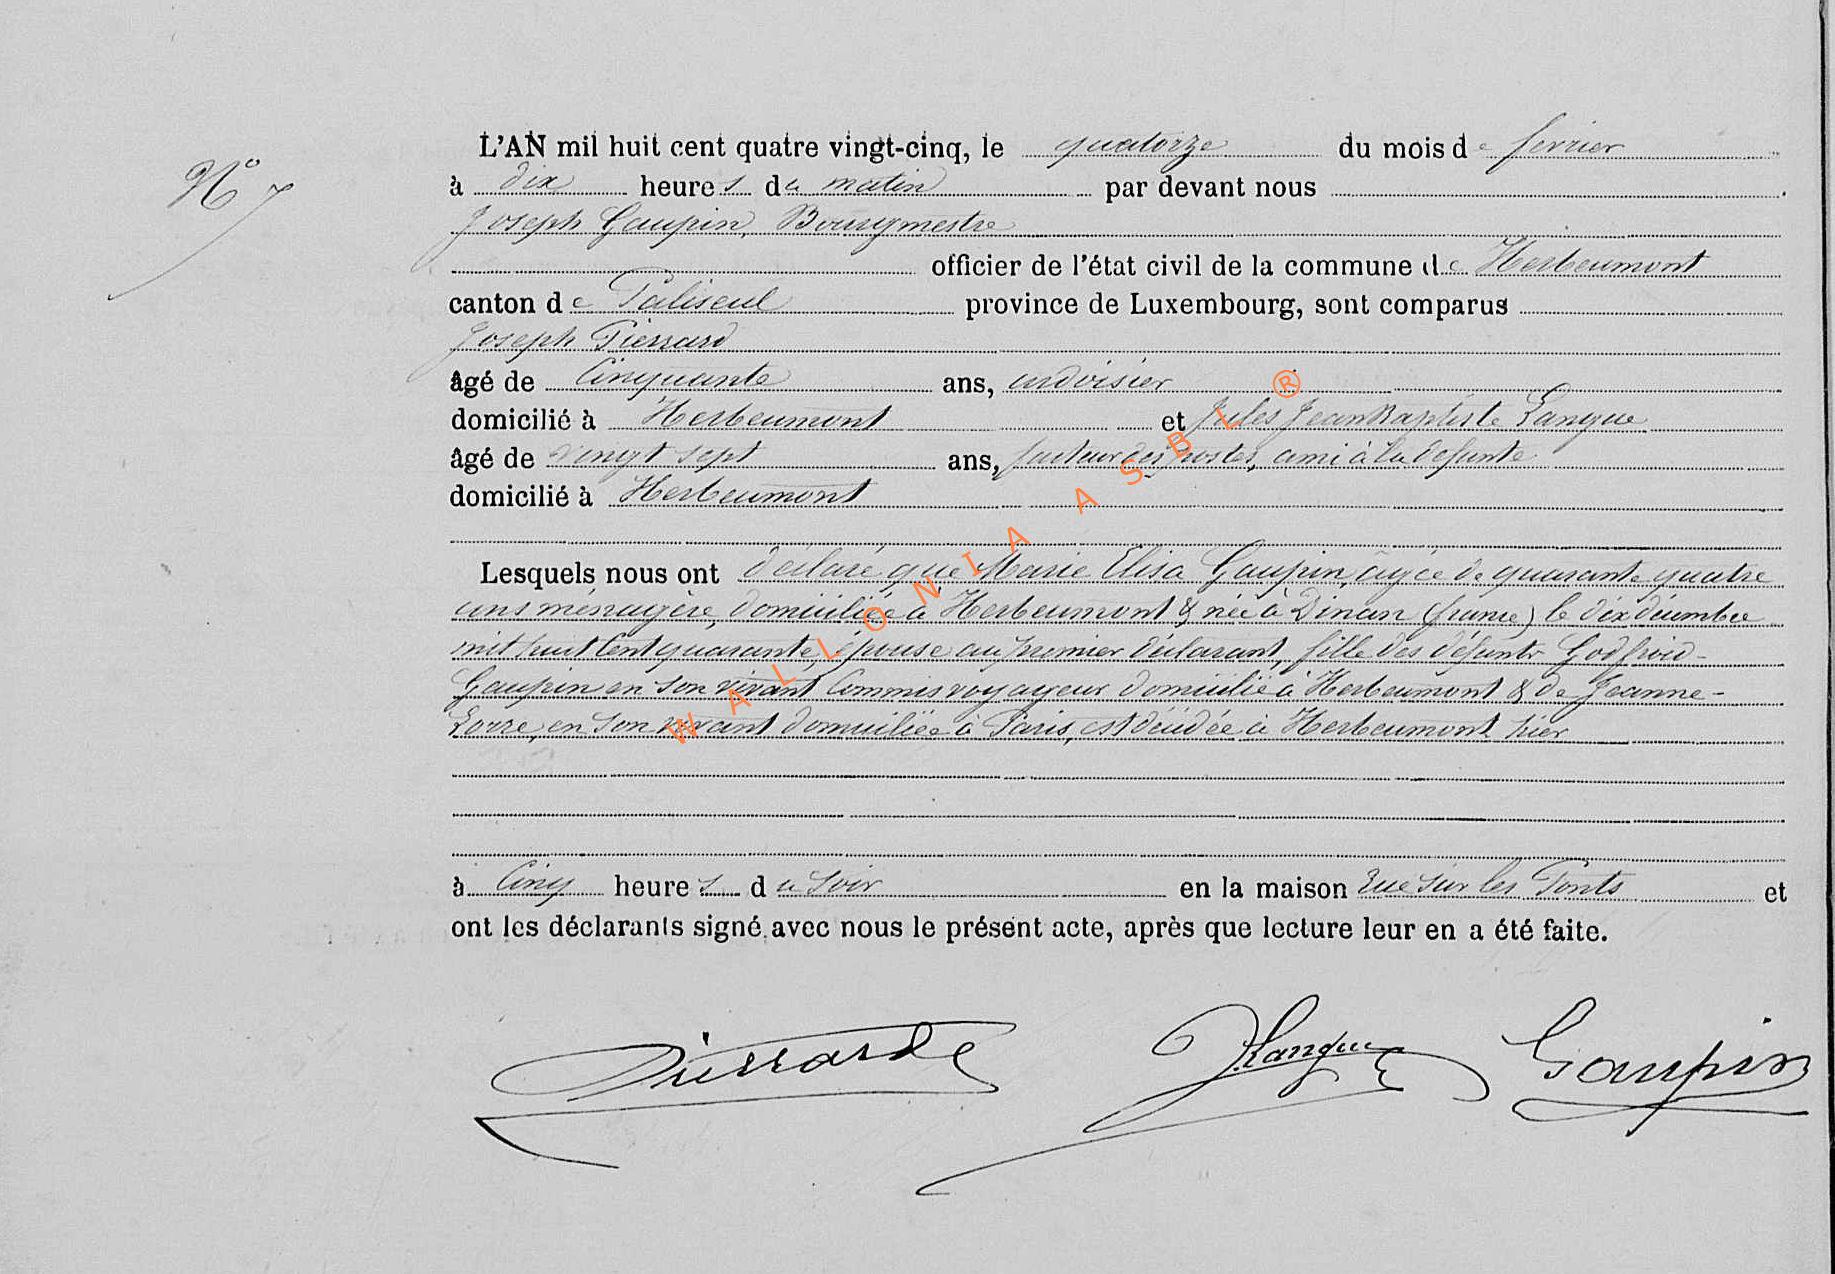 N° 7
L'AN mil huit cent quatre vingt-cinq, le quatorze du mois de fevrier
à dix heures du matin par devant nous
Joseph Gaupin, Bourgmestre
officier de l'état civil de la commune de Herbeumont
canton de Paliseul province de Luxembourg, sont comparus
Joseph Pierrard
âgé de Cinquante ans, ardoisier
domicilié à Herbeumont et Jules Jean Baptiste Langue
âgé de vingt sept ans, facteur des postes, ami à la defunte
domicilié à Herbeumont
Lesquels nous ont déclaré que Marie Elisa Gaupin, âgée de quarante quatre
ans ménagère, domiciliée à Herbeumont & née à Dinan (france) le dix décembre
mil huit Cent quarante, épouse au premier déclarant, fille des défunts Godfroid-
Gaupin en son vivant Commis voyageur domicilié à Herbeumont & de Jeanne-
en son vivant domiciliée à Paris, est décédée à Herbeumont hier
à Cinq heures du soir en la maison rue sur les Ponts et
ont les déclarants signé avec nous le présent acte, après que lecture leur en a été faite.
Pierrard JLangue Gaupin
WALLONIA ASBL ®